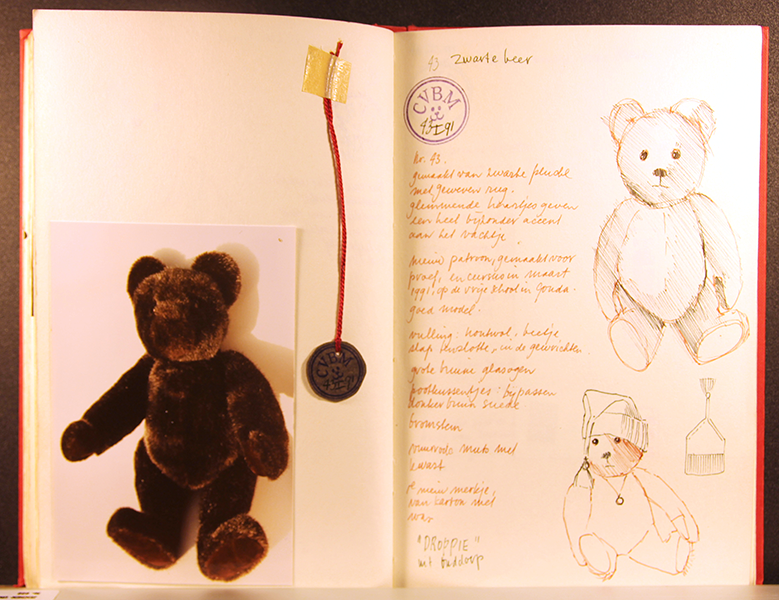 43 zwarte beer
CVBM
43 I 91
Nr. 43.
gemaakt van zwarte pluche
met geweven rug.
glimmende haartjes geven
een heel bijzonder accent
aan het vachtje.
nieuw patroon, gemaakt voor
proef, en cursus in maart
1991, op de vrije school in Gouda.
goed model.
vulling: houtwol. beetje
slap tenslotte, in de gewrichten.
grote bruine glasogen
pootkussentjes: bijpassen
donker bruin suede
bromstem
muts met
kwast
nieuw merkje,
van karton met
was
"DROPPIE"
uit Ouddorp
CVBM
43 I 91